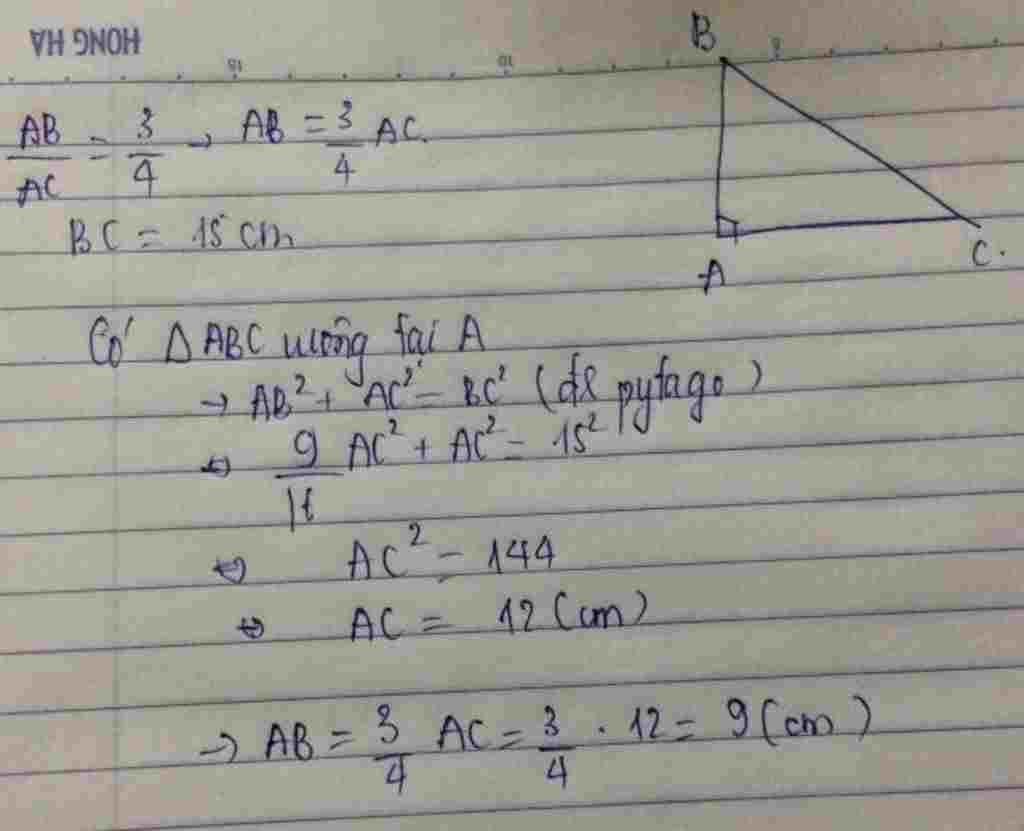 HONG HA
15 10 5
B
AB/AC = 3/4 → AB = 3/4 AC.
BC = 15 cm
A
C.
Có Δ ABC vuông tại A
→ AB² + AC² = BC² (đl pytago)
↔ 9/16 AC² + AC² = 15²
↔ AC² = 144
↔ AC = 12 (cm)
→ AB = 3/4 AC = 3/4 . 12 = 9 (cm)